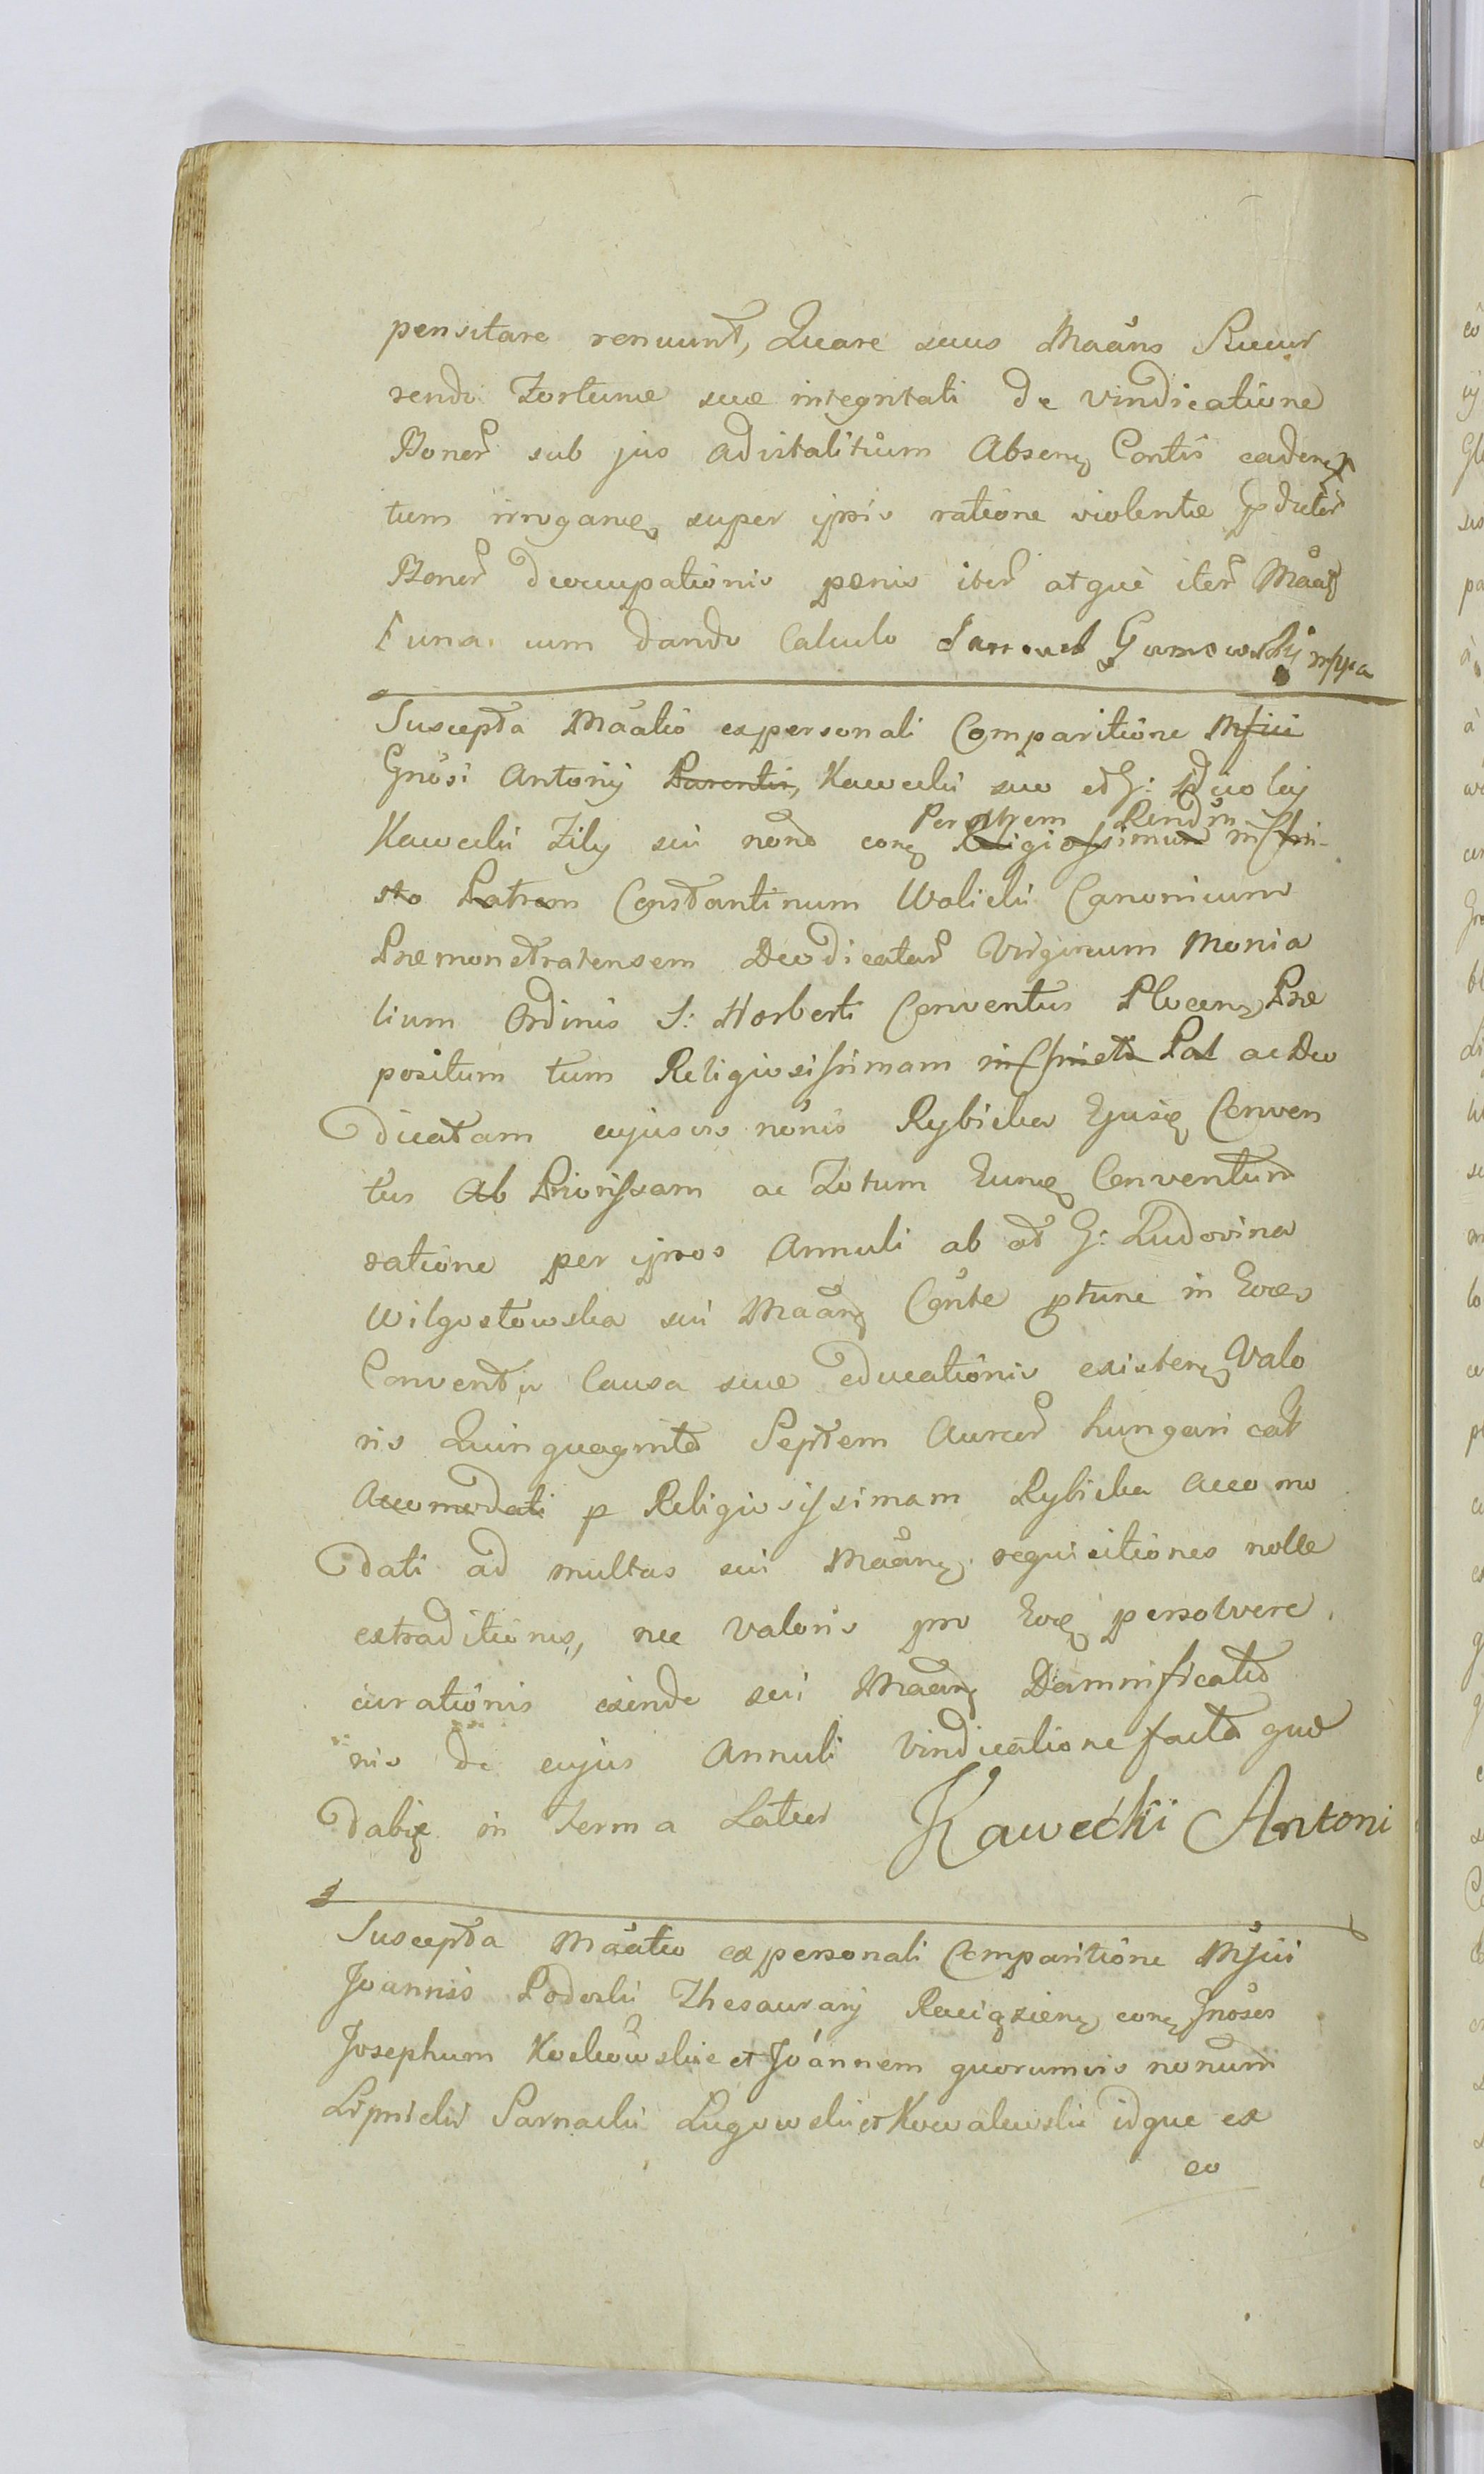 pensitare renuunt, Quare suus Maans Recur
rendo Fortunæ suæ integritati de vindicatione
Boner sub jus advitalitium Absenq Contis cadenq
tum irroganæq super ipsis ratione violentæ Pdutor
Boner deoccupationis pænis iter atque iter Maat
una cum dando Calculo Samuel Gumowsky mppa
Suscepta Maatio ex personali Comparitione Mfici
Gnosi Antonij Parentis, Kawecki suo et G:
Kawecki Filij sui noie conq Religiossimum in Chri-
Perillustrem Rendum
sto Patrem Constantinum Wolicki Canonicum
Præmonstratensem Deodicatar Virginum Monia
lium Ordinis S: Norberti Conventus Plocenq Præ
positum tum Religiosissimam in Christi Pat ac Deo
dicatam cujusvis nonis Rybicka Ejusq Conven
tus Ab Priorissam ac Totum Eunq Conventum
ratione per ipsos Annuli ab ad G: Ludovina
Wilgostowska sui Maanq Conte ptunc in Eoq
Conventu Causa suæ educationis existenq Valo
ris Quinquaginta Septem Aureor hungarical
Accomodati p Religiosissimam Rybicka Acco mo
dati ad multas sui Maanq requisitiones nolle
extraditionis, nec Valoris pro Eoq persolvere
curationis exinde sui Maanq Damnificatio
nis de cujus Annuli Vindicatione facta quæ
dabiq in Terma Latius Kawecki Antoni
Suscepta Maatio ex personali Comparitione Mfici
Joannis Podoski Thesaurarij Raciązienq conq Gnosos
Josephum et Joannem quorumvis nonum
Lipnicki Sarnacki Lugowskie et Kowalewskie idque ex
eo